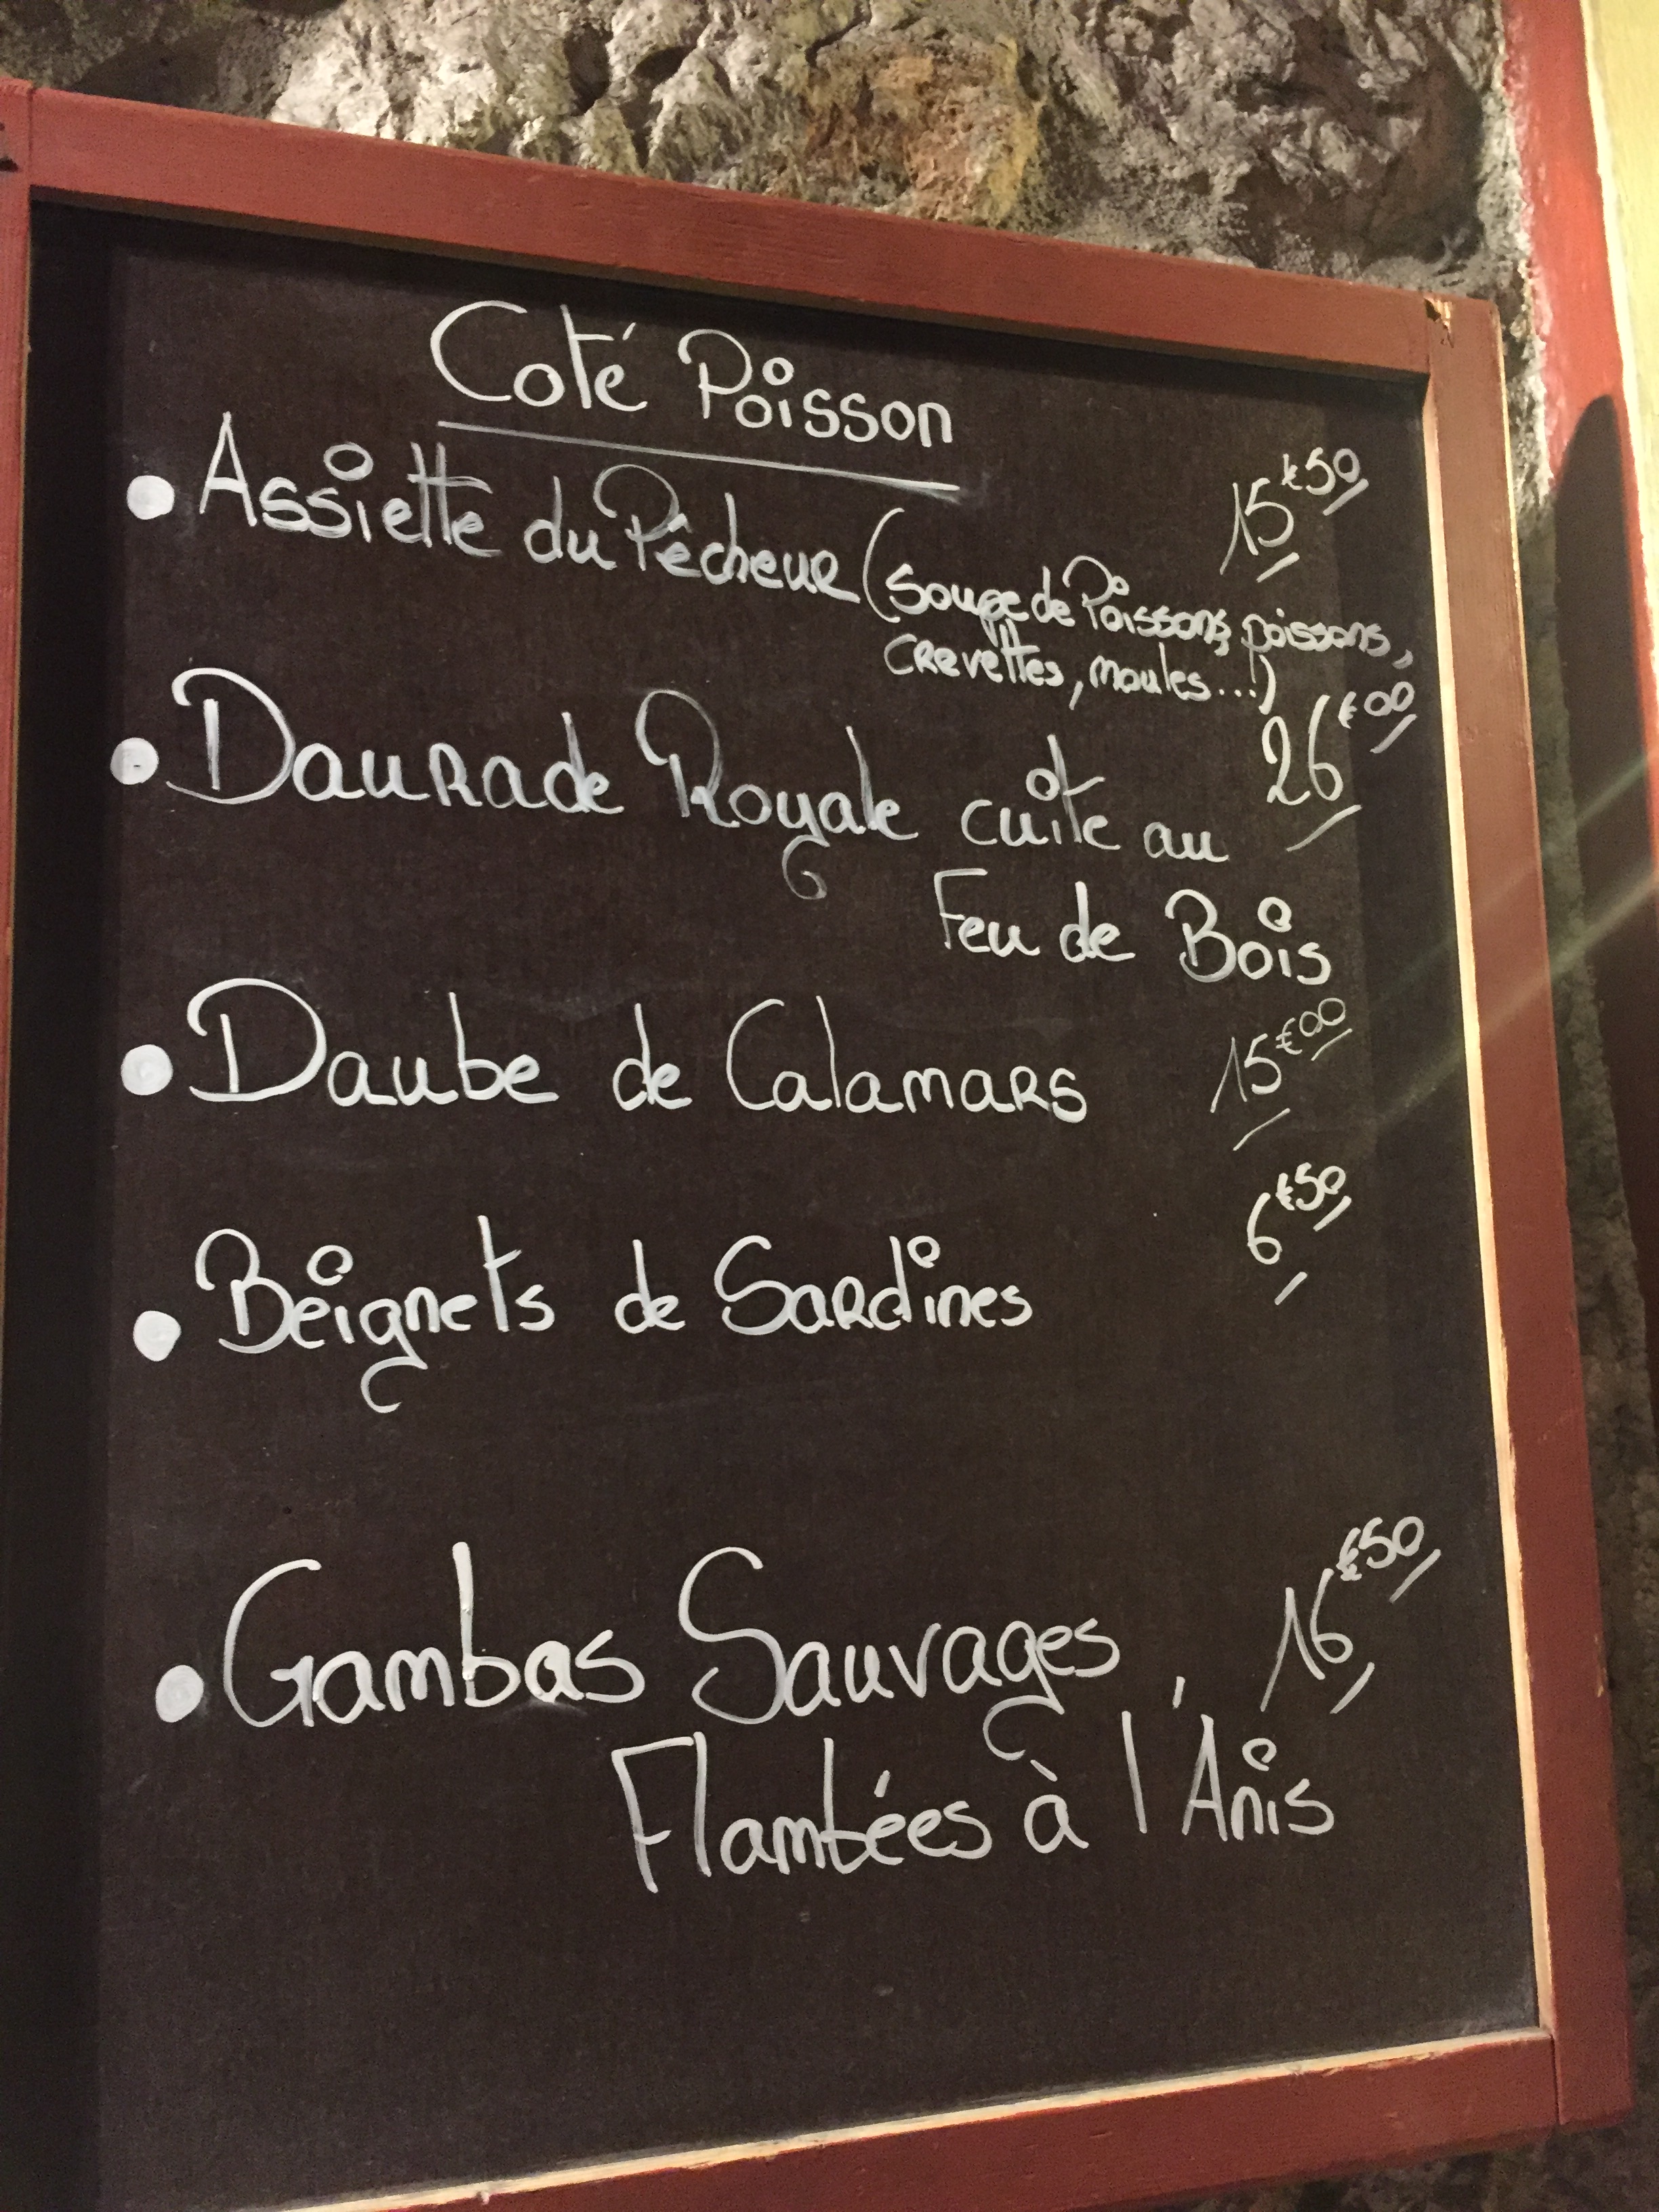 Coté Poisson
• Assiette du Pêcheur (soupe de Poissons, poissons, 15€50
crevettes, moules...!)
• Daurade Royale cuite au 26€00
Feu de Bois
• Daube de Calamars 15€00
• Beignets de Sardines 6€50
• Gambas Sauvages 16€50
Flambées à l'Anis